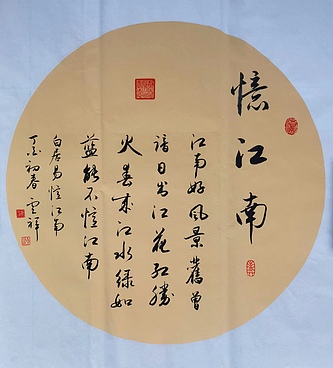 憶江南
江南好風景舊曾
諳日出江花紅勝
火春來江水綠如
藍能不憶江南
白居易憶江南
丁酉初春雲祥